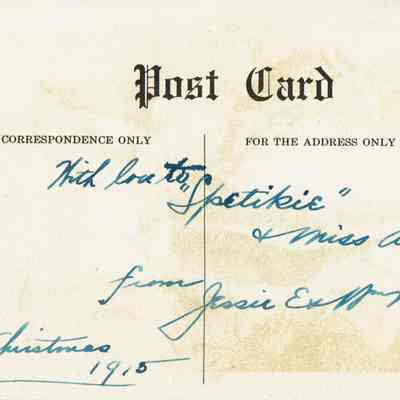 Post Card
CORRESPONDENCE ONLY
FOR THE ADDRESS ONLY
With love to
"Spetikie"
& Miss A
from Jessie E & Wm
Christmas
1915